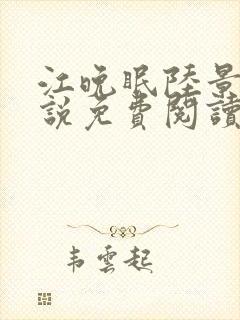 江晚眠陸景
說免費閱讀
韦雲起